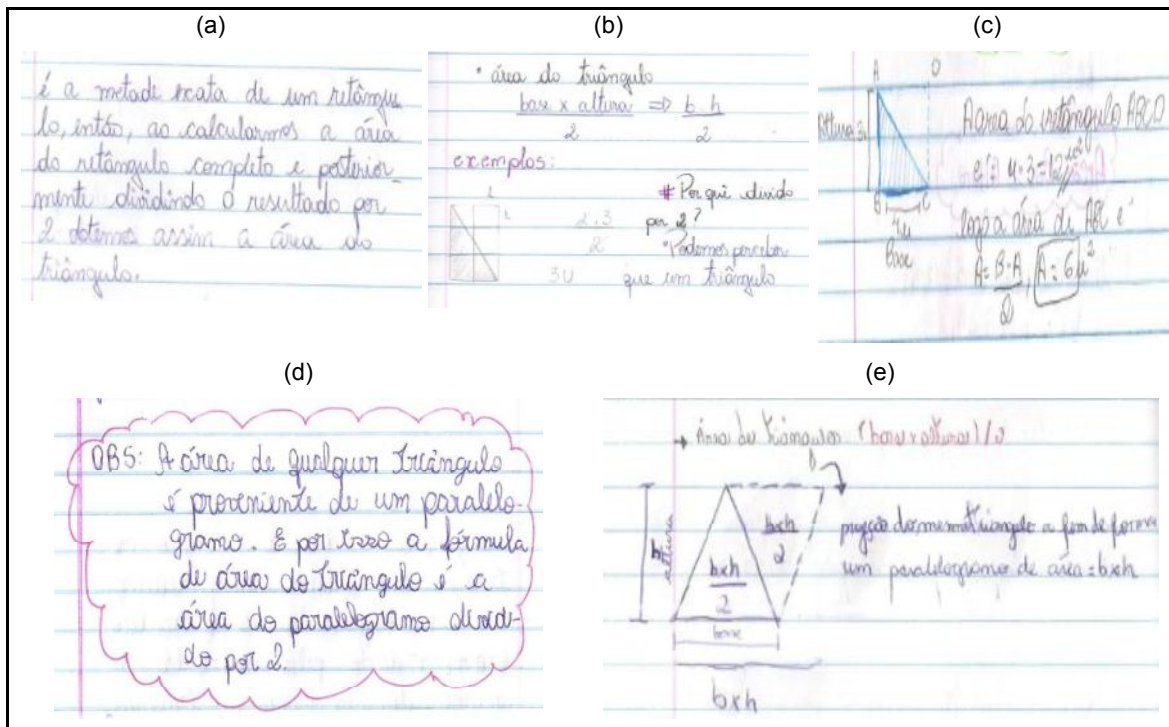 (a)
é a metade exata de um retângu
lo, então, ao calcularmos a área
do retângulo completo e posterior
mente dividindo o resultado por
2 obtemos assim a área do
triângulo.
(b)
• área do triângulo
base x altura ⇒ b.h
2 2
exemplos:
# Por quê divido
2.3 por 2?
2
• Podemos perceber
3U que um triângulo
(c)
A D
Altura 3u
A area do retângulo ABCD
é: 4.3=12
B C
logo a área de ABC é
base
A= B.A , A= 6u²
2
(d)
OBS: A área de qualquer triângulo
é proveniente de um paralelo-
gramo. E por isso a fórmula
de área do triângulo é a
área do paralelogramo dividi-
do por 2.
(e)
→ Área de triângulos (base x altura)/2
h
altura
bxh
2
bxh
2
base
bxh
do mesmo triangulo a fim de formar
um paralelogramo de área = bxh